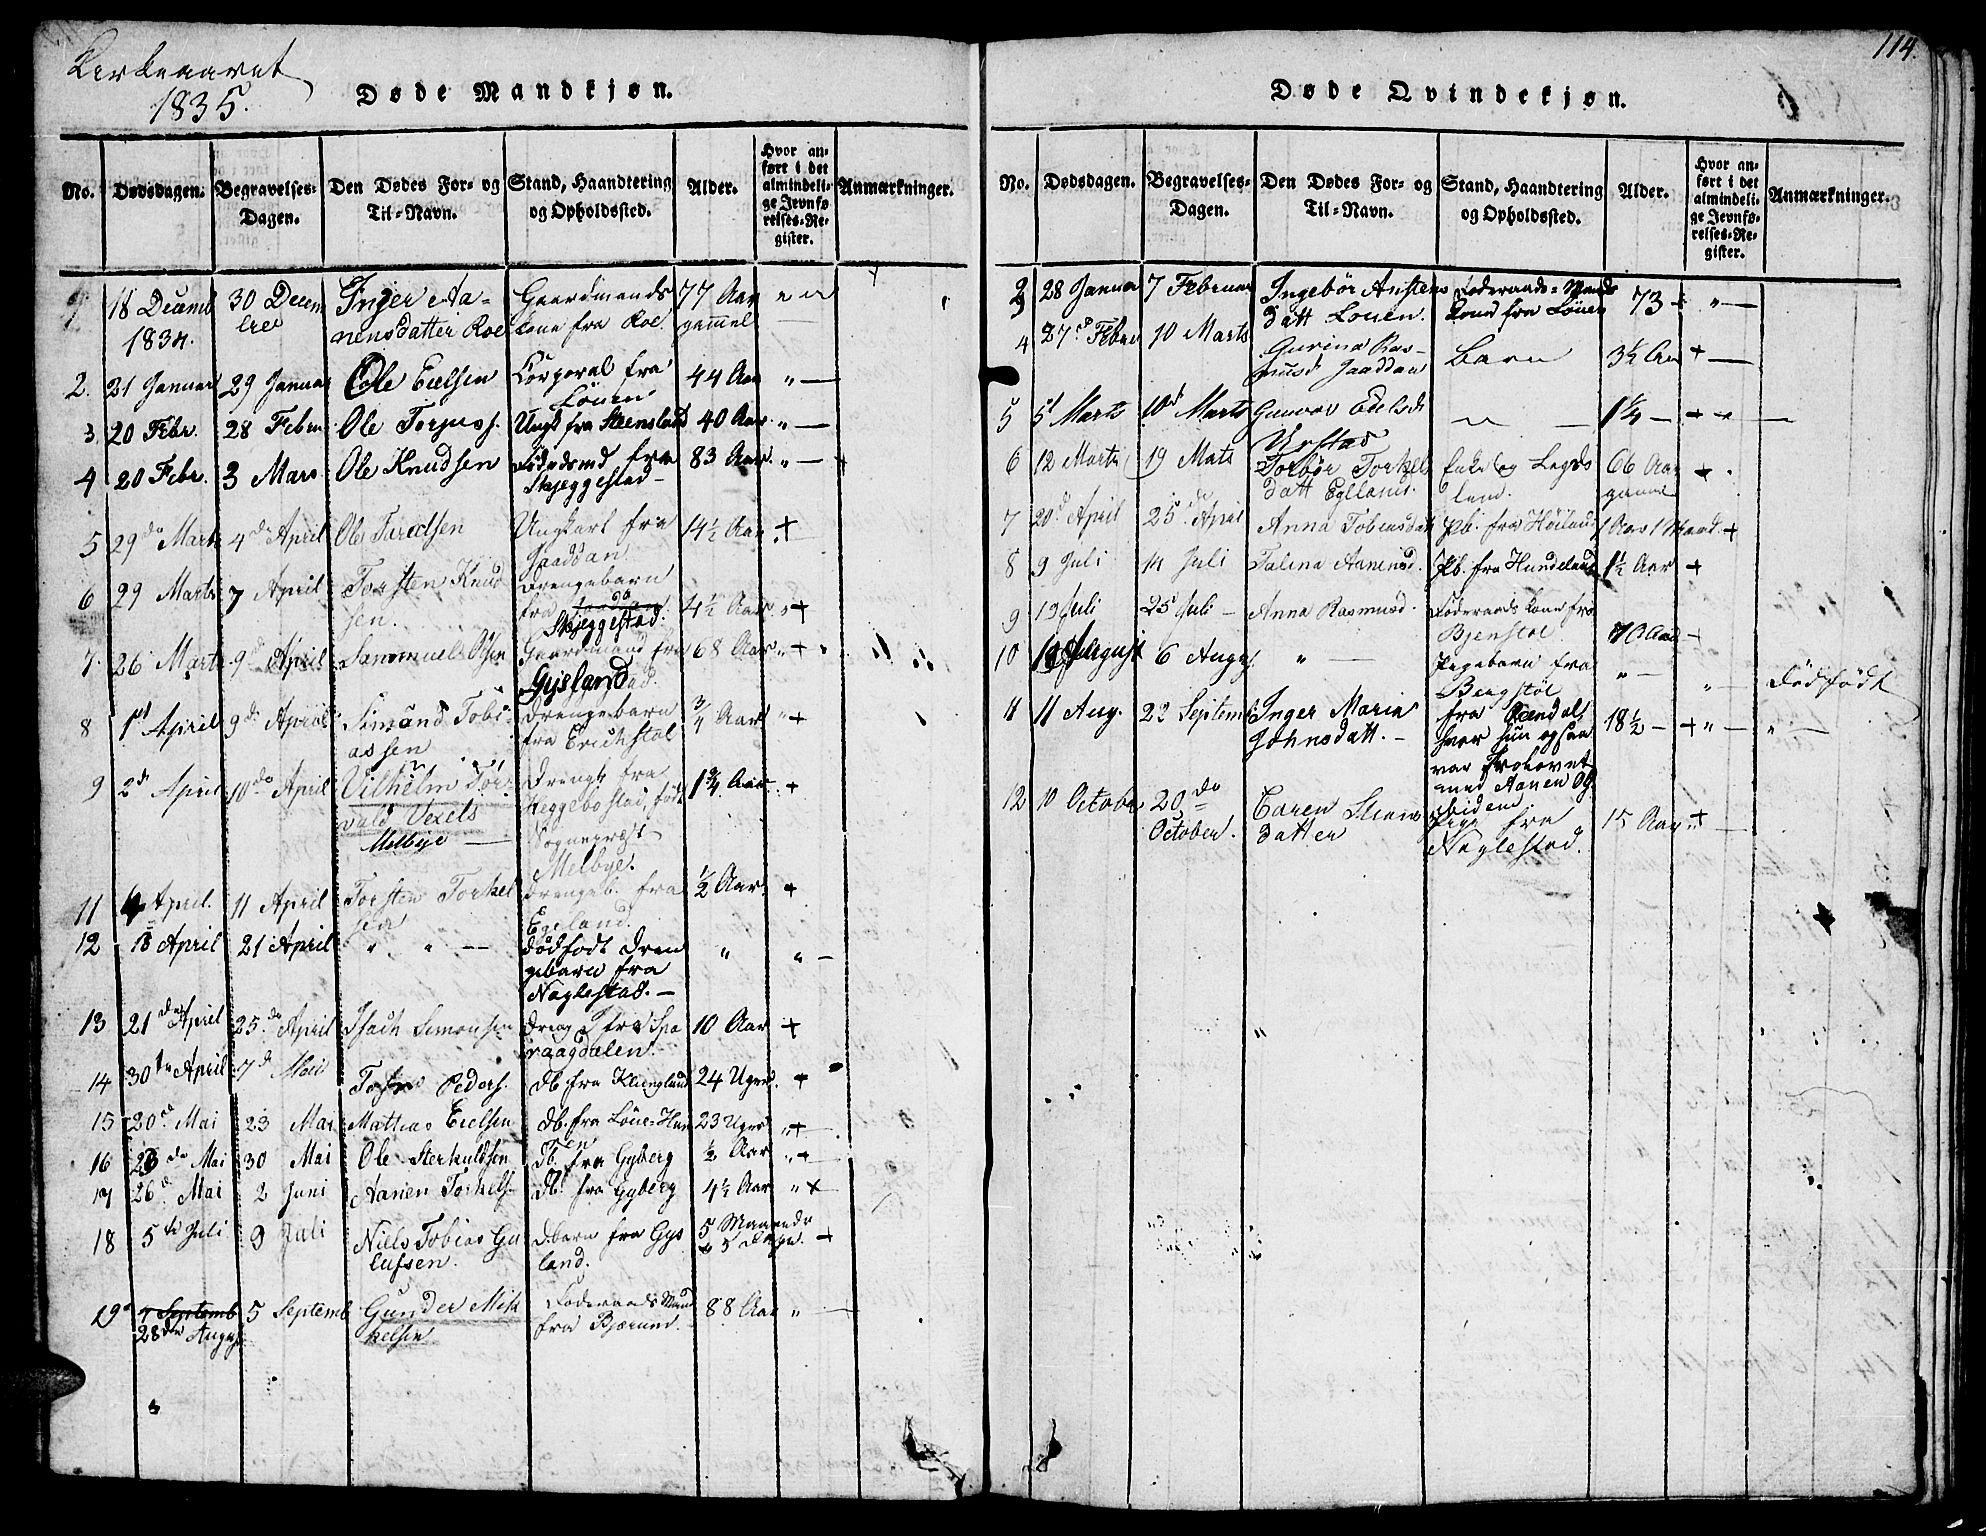 Kirkeaaret
1835.
Døde Mandkjøn.
No. Dødsdagen. Begravelses-Dagen. Den Dødes For- og Til-Navn. Stand, Haandtering og Opholdssted. Alder. Hvor anført i det almindelige Jevnførelses-Register. Anmærkninger.
18 Decemb 1834. 30 Decem Inger Aanensdatter Roe Gaardmands Kone fra Roe. 77 Aar gammel
2. 21 Januar 29 Januar Ole Eielsen Corporal fra Løuen 44 Aar " —
3 20 Febr. 28 Febru Ole Torjus s. Ungk fra Steensland 40 Aar " —
4 20 Febr. 3 Mars Ole Knudsen fra Skjeggestad 83 Aar " —
5 29 de Marts 4 de April Ole Ungkarl fra Jaaddan 14½ Aar +
6 29 Marts 7 April Torsten Knudsen. Drengebarn fra Skjeggestad. 4½ Aar +
7. 26 Marts 9 d April Sammuel Olsen Gaardmand fra Gysland 68 Aar " +
8 1st April 9 d April Simund Tobiassen Drengebarn fra Erichstøl 3/4 Aar " +
9 2 d April 10 de April Vilhelm Torvald Vexels Melbye — Drengb fra Heggebostad, født Sognepræst Melbye. 1¾ Aar +
11 April. 11 April Torsten Torkelsen Drengeb. fra Egeland. ½ Aar +
12 18 April 21 April " " — dødfødt Drengebarn fra Naglestad. — " " —
13 21 de April 25 de April Isach Simonsen Dreng fra Sparaagdalen. 10 Aar +
14 30 te April 7 d Mai Peders. Db fra Klungland 24 Uger. +
15 20 d Mai 23 Mai Mathias Eielsen Db. fra Løue 23 Uger " +
16 26 de Mai 30 Mai Ole Sterkuldsen Db fra Gyberg ½ Aar " +
17 26 d Mai 2 Juni Aanen Torkels. Db. fra Gyberg 4½ Aar " +
18 5 te Juli 9 Juli Niels Tobias Gulufsen. Dbarn fra Gysland. 5 Maaneder 5 Dage. +
19 4 Septemb 28 den August 5 Septemb Gunder Mikkelsen Føderaads Mand fra Bjærund. 88 Aar " —
114.
Døde Qvindekjøn.
No. Dødsdagen. Begravelses-Dagen. Den Dødes For- og Til-Navn. Stand, Haandtering og Opholdssted. Alder. Hvor anført i det almindelige Jevnførelses-Register. Anmærkninger.
3 28 Januar 7 Februar Ingebør Anstensdatt Louen. Føderaads-Mands Kone fra Løuen 73 — " —
4 27 de Febru 10 Marts Gurina Rasmusd Jaaddan Barn 3½ Aar +
5 5t Marts 10 d Marts Gunvor Edelsd. Urstad 1¼ — +
6 12 Marts 19 Mats Torbør Torkelsdatt Eglland. Enke og Legdslem. 66 Aar gamel +
7 20 d April 25 de April Anna Tobiasdatt Pb. fra Høiland 1 Aar 1 Maaned +
8 9 Juli 14 Juli Talina Aanensd. Pb. fra Hundeland 1½ Aar +
9 19 Juli 25 d Juli — Anna Rasmusd. Føderaads Kone fra Bjenstøl. 70 Aar —
10 August 6 August " — Pigebarn fra Bergstøl " — " — Dødfødt
11 11 Aug. 22 Septemb Inger Maria Johnsdatt. — fra hvor hun ogsaa var trolovet med Aanen Ols ibidem 18½ — + " — " —
12 10 Octobr 20 de October. Caren Steensdatter Pige fra Naglestad. 15 Aar " + —